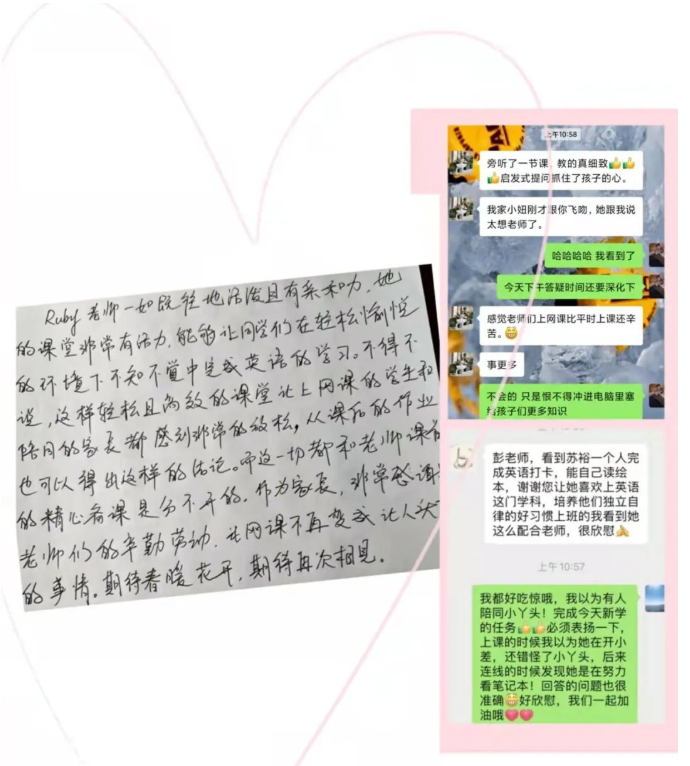 Ruby老师一如既往地活泼且有亲和力,她
的课堂非常有活力,能够让同学们在轻松愉悦
的环境下不知不觉中完成英语的学习。不得不
说,这样轻松且高效的课堂让上网课的学生和
陪同的家长都感到非常的放松,从课后的作业
也可以得出这样的结论。而这一切都和老师课前
的精心备课是分不开的。作为家长,非常感谢
老师们的辛勤劳动,让网课不再变成让人头
的事情。期待春暖花开,期待再次相见。
上午10:58
旁听了一节课,教的真细致👍👍
👍启发式提问抓住了孩子的心。
我家小妞刚才跟你飞吻,她跟我说
太想老师了。
哈哈哈哈 我看到了
今天下午答疑时间还要深化下
感觉老师们上网课比平时上课还辛
苦。😁
事更多
不会的 只是恨不得冲进电脑里塞
给孩子们更多知识
彭老师,看到苏裕一个人完
成英语打卡,能自己读绘
本,谢谢您让她喜欢上英语
这门学科,培养他们独立自
律的好习惯上班的我看到她
这么配合老师,很欣慰🙏
上午10:57
我都好吃惊哦,我以为有人
陪同小丫头!完成今天新学
的任务👍👍必须表扬一下,
上课的时候我以为她在开小
差,还错怪了小丫头,后来
连线的时候发现她是在努力
看笔记本!回答的问题也很
准确😁好欣慰,我们一起加
油哦❤❤